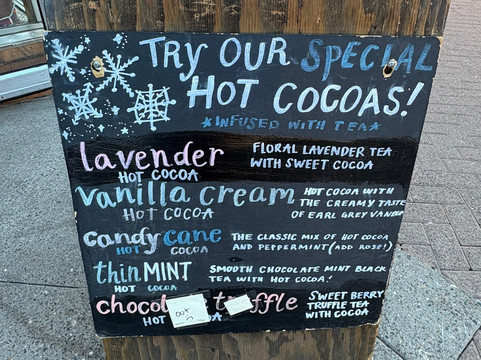 TRY OUR SPECIAL
HOT COCOAS!
*INFUSED WITH TEA*
lavender
HOT COCOA
FLORAL LAVENDER TEA
WITH SWEET COCOA
vanilla cream
HOT COCOA
HOT COCOA WITH
THE CREAMY TASTE
OF EARL GREY
candy cane
HOT COCOA
THE CLASSIC MIX OF HOT COCOA
AND PEPPERMINT (ADD ROSE!)
thin MINT
HOT COCOA
SMOOTH CHOCOLATE MINT BLACK
TEA WITH HOT COCOA!
truffle
HOT
OUT
SWEET BERRY
TRUFFLE TEA
WITH COCOA